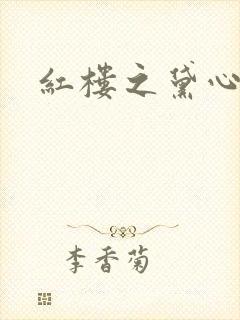 紅樓之黛心
李香菊